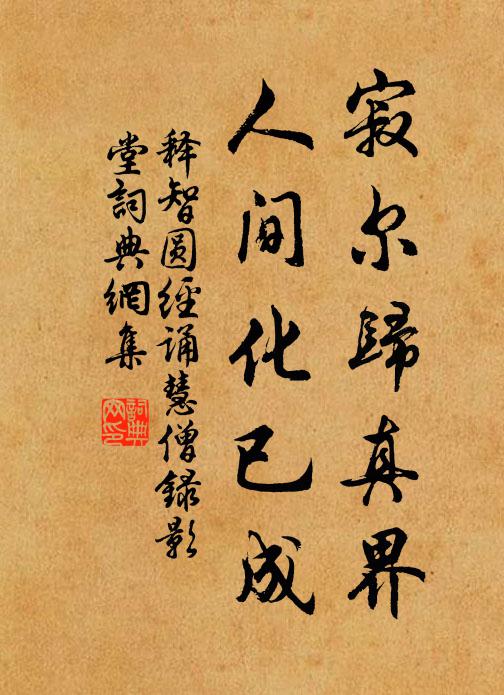 寂尔歸真界
人间化已成
释智圆經诵慧僧録影
堂詞典網集
詞典网印